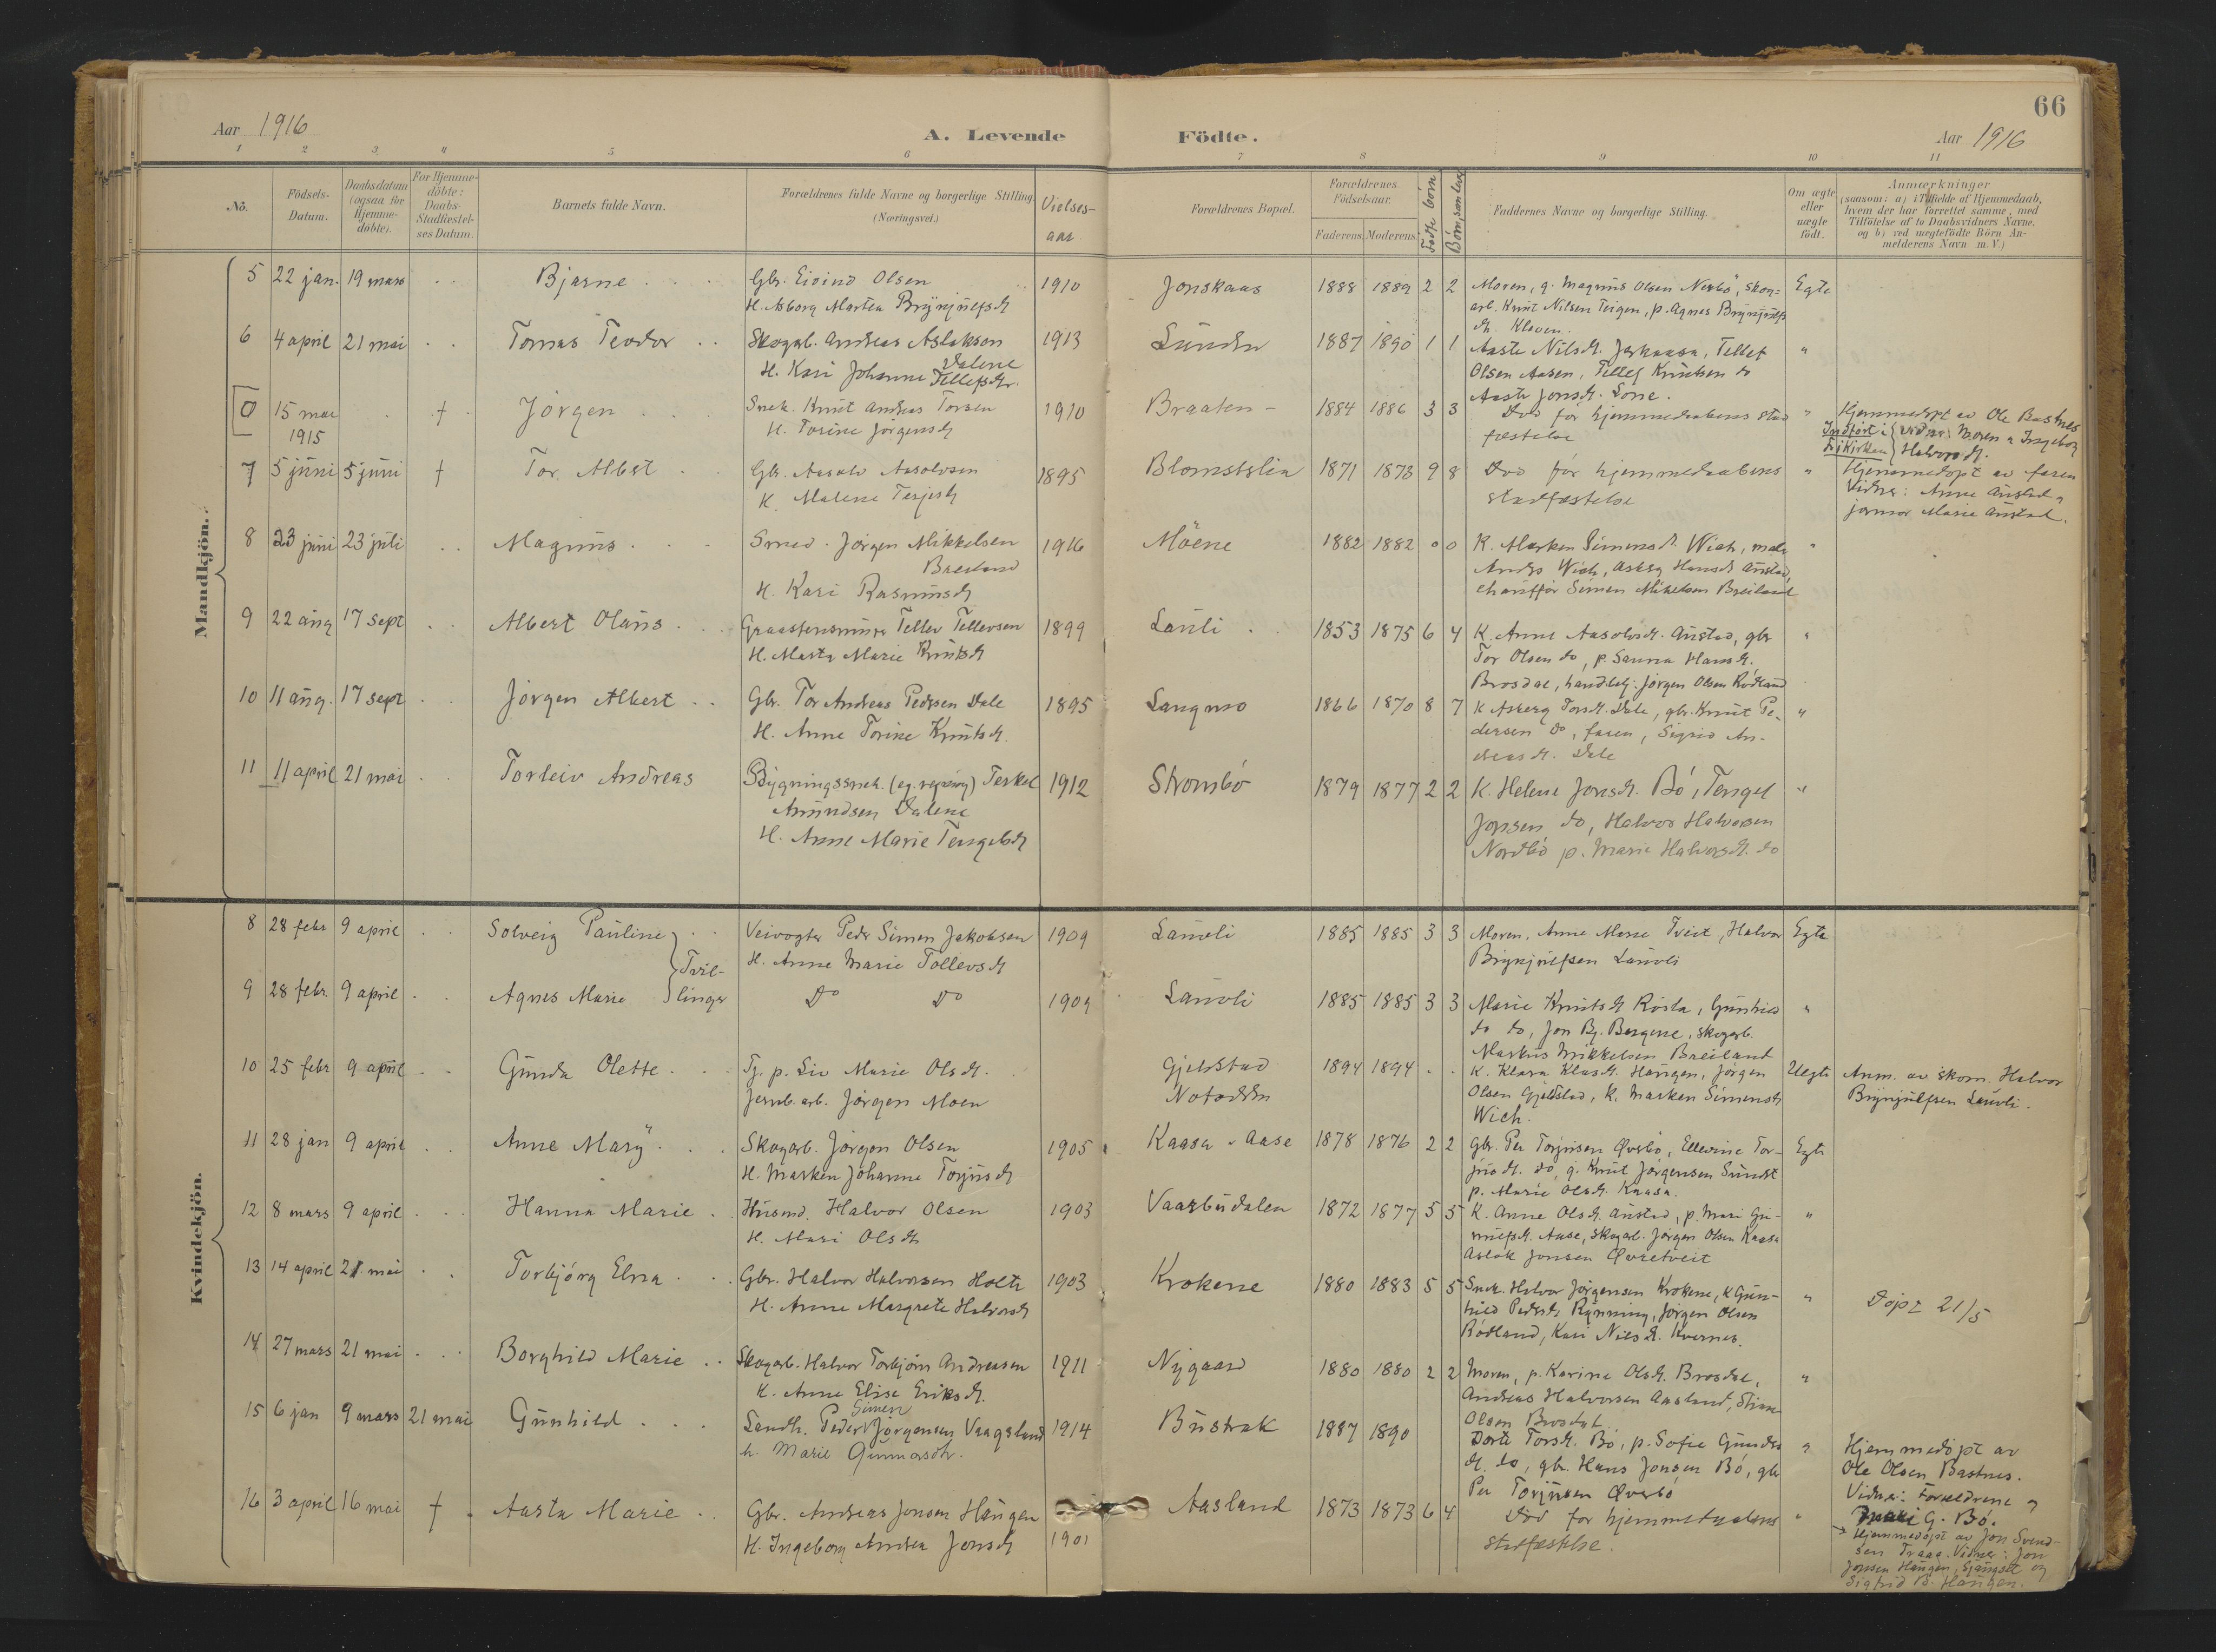 66
Aar 1916
A. Levende Födte.
Aar 1916
1 2 3 4 5 6 7 8 9 10 11
No.
Födsels-
Datum.
Daabsdatum
(ogsaa for
Hjemme-
döbte).
For Hjemme-
döbte:
Daabs-
Stadfæstel-
ses Datum.
Barnets fulde Navn.
Forældrenes fulde Navne og borgerlige Stilling
(Næringsvei.)
Vielses-
aar
Forældrenes Bopæl.
Forældrenes
Födselsaar.
Faderens.
Moderens.
Födte börn
Börn, som lever
Faddernes Navne og borgerlige Stilling.
Om ægte
eller
uægte
födt.
Anmærkninger
(saasom: a) i Tilfælde af Hjemmedaab,
hvem der har forrettet samme, med
Tilföielse af to Daabsvidners Navne.
og b) ved uægtefödte Börn An-
melderens Navn m. V.)
Mandkjön.
5 22 jan. 19 mars Bjarne Gbr. Eivind Olsen 1910 Jonskaas 1888 1889 2 2 Moren, g. Magnus Olsen Nesbö, skog- Egte
H. Asborg Martea Brynjulfsdt arb. Knut Nilsen Teigen, p. Agnes Brynjulfs
dt. Kleven.
6 4 april 21 mai Tomas Teodor Skogarb. Andreas Aslaksen 1913 Lunden 1887 1890 1 1 Aaste Nilsdt. , Tellef "
Dalene
H. Kari Johanne Tellefsdt. Olsen Aasen, Tellef Knutsen do
Aaste Jonsdt. Lone.
0 15 mai † Jörgen Snek. Knut Andreas Torsen 1910 Braaten 1884 1886 3 3 Död för hjemmedaabens stad "
1915 H. Torine Jörgensdt fæstelse
Hjemmedöpt av Ole Bastnes
Indfört i Vidner: Moren & Ingeborg
Frikirken Halvorsdt.
7 5 juni 5 juni † Tor Albert Gbr. Aasolv Aasolvsen 1895 Blomstslia 1871 1873 9 8 Död för hjemmedaabens "
K. Malene Terjesdt stadfæstelse
Hjemmedöpt av faren
Vidner: Anne Austad &
jormor Marie Austad.
8 23 juni 23 juli Magnus Smed. Jörgen Mikkelsen 1916 Möene 1882 1882 0 0 K. Marken Simensdt. Wich, maler "
Breiland Anders Wich, Asberg Hansdt Austad,
H. Kari Rasmusdt chaufför Simen Mikkelsen Breiland
9 22 aug 17 sept Albert Olaus Graastensmurer Tellev Tellevsen 1899 Lauli 1853 1875 6 4 K. Anne Aasolvsdt. Austad, gbr "
H. Marta Marie Knutsdt Tor Olsen do, p. Sanna Hansdt.
Brosdal, handelsbtj. Jörgen Olsen Rödland
10 11 aug. 17 sept Jörgen Albert Gbr. Tor Andreas Pedersen Dale 1895 Langmo 1866 1870 8 7 K Asberg Torsdt. Dale, gbr. Knut Pe- "
H. Anne Torine Knutsdt. dersen do, faren, Sigrid An-
dreasdt. Dale
11 11 april 21 mai Torleiv Andreas Bygningssnek. Terkel 1912 Strombö 1879 1877 2 2 K. Helene Jonsdt. Bö, Tengel "
Amundsen Dalene Jonsen do, Halvor Halvorsen
H. Anne Marie Tengelsdt Nordbö p. Marie Halvorsdt. do
Kvindekjön.
8 28 febr 9 april Solveig Pauline Veivogter Peder Simen Jakobsen 1909 Lauvli 1885 1885 3 3 Moren, Anne Marie Tveit, Halvor Egte
Tvil- H. Anne Marie Tollevsdt Brynjulfsen Lauvli
9 28 febr. 9 april Agnes Marie linger Do Do 1909 Lauvli 1885 1885 3 3 Marie Knutsdt Rösta, Gunhild "
do do, Jon Bj. Bergene, skogarb.
Markus Mikkelsen Breiland
10 25 febr 9 april Gunda Olette Tj. p. Liv Marie Olsdt. Gjelstad 1894 1894 K. Klara Klasdt. Haugen, Jörgen Uegte Anm. av skom. Halvor
Jernb.arb. Jörgen Moen Notodden Olsen Gjelstad, K. Marken Simensdt Brynjulfsen Lauvli.
Wich.
11 28 jan 9 april Anne Mary Skogarb. Jörgen Olsen 1905 Kaasa - Aase 1878 1876 2 2 Gbr. Per Torjusen Överbö, Ellevine Tor- Egte
H. Marken Johanne Torjusdt jusdt. do, g. Knut Jörgensen Sundet
p. Marie Olsdt. Kaasa.
12 8 mars 9 april Hanna Marie Husmd. Halvor Olsen 1903 Vaarbudalen 1872 1877 5 5 K. Anne Olsdt. Austad, p. Mari Gu- "
H. Mari Olsdt nulfsdt. Aase, skogarb. Jörgen Olsen Kaasa
Aslak Jonsen Övretveit
13 14 april 21 mai Torbjörg Elna Gbr. Halvor Halvorsen Holte 1903 Krokene 1880 1883 5 5 Snek. Halvor Jörgensen Krokene, K Gun- " Döpt 21/5
H. Anne Margrete Halvorsdt hild Pedersdt Rynning, Jörgen Olsen
Rödland, Kari Nilsdt. Kvernes.
14 27 mars 21 mai Borghild Marie Skogarb. Halvor Torbjörn Andreasen 1911 Nygaard 1880 1880 2 2 Moren, p. Karine Olsdt. Brosdal, "
K. Anne Elise Eriksdt. Andreas Halvorsen Aasland, Simen
Olsen Brosdal.
15 6 jan 9 mars 21 mai Gunhild Landh. Peder Simen Jörgensen Vaagsland 1914 Bustrak 1887 1890 Dorte Torsdt. Bö, p. Sofie Gunders "
h. Marie Gunnarsdtr. dt. do, gbr. Hans Jonsen Bö, gbr
Per Torjusen Överbö
Hjemmedöpt av
Ole Olsen Bastnes.
Vidner: Foreldrene &
G. Bö.
16 3 april 16 mai † Aasta Marie Gbr. Andreas Jonsen Haugen Aasland 1873 1873 6 4 Död for hjemmedaabens "
H. Ingeborg Andrea Jonsdt 1901 stadfæstelse.
Hjemmedöpt av Jon Svend-
sen Traaa. Vidner: Jon
Jonsen Haugen, og
Sigrid B. Haugen.